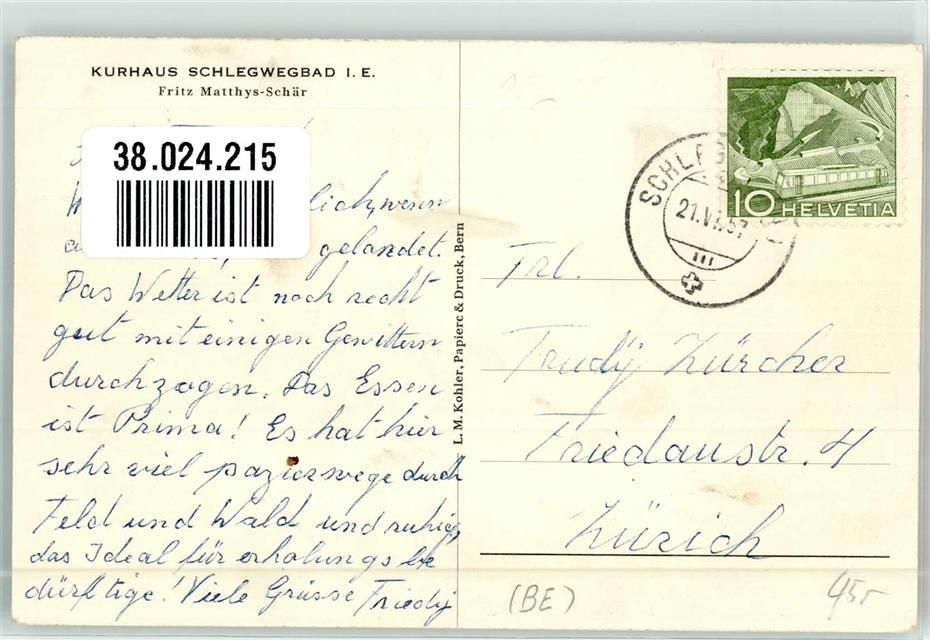 KURHAUS SCHLEGWEGBAD I. E.
Fritz Matthys-Schär
38.024.215
lich, wenn
gelandet.
Das Wetter ist noch recht
gut mit einigen Gewittern
durchzogen. Das Essen
ist Prima! Es hat hier
sehr viel pazierwege durch
Feld und Wald und ruhig,
das Ideal für erholungs be
dürftige! Viele Grüsse Friedy
L. M. Kohler, Papiere & Druck, Bern
10 HELVETIA
21.VI.57
Frl.
Trudy Zürcher
Friedaustr. 4
Zürich
(BE)